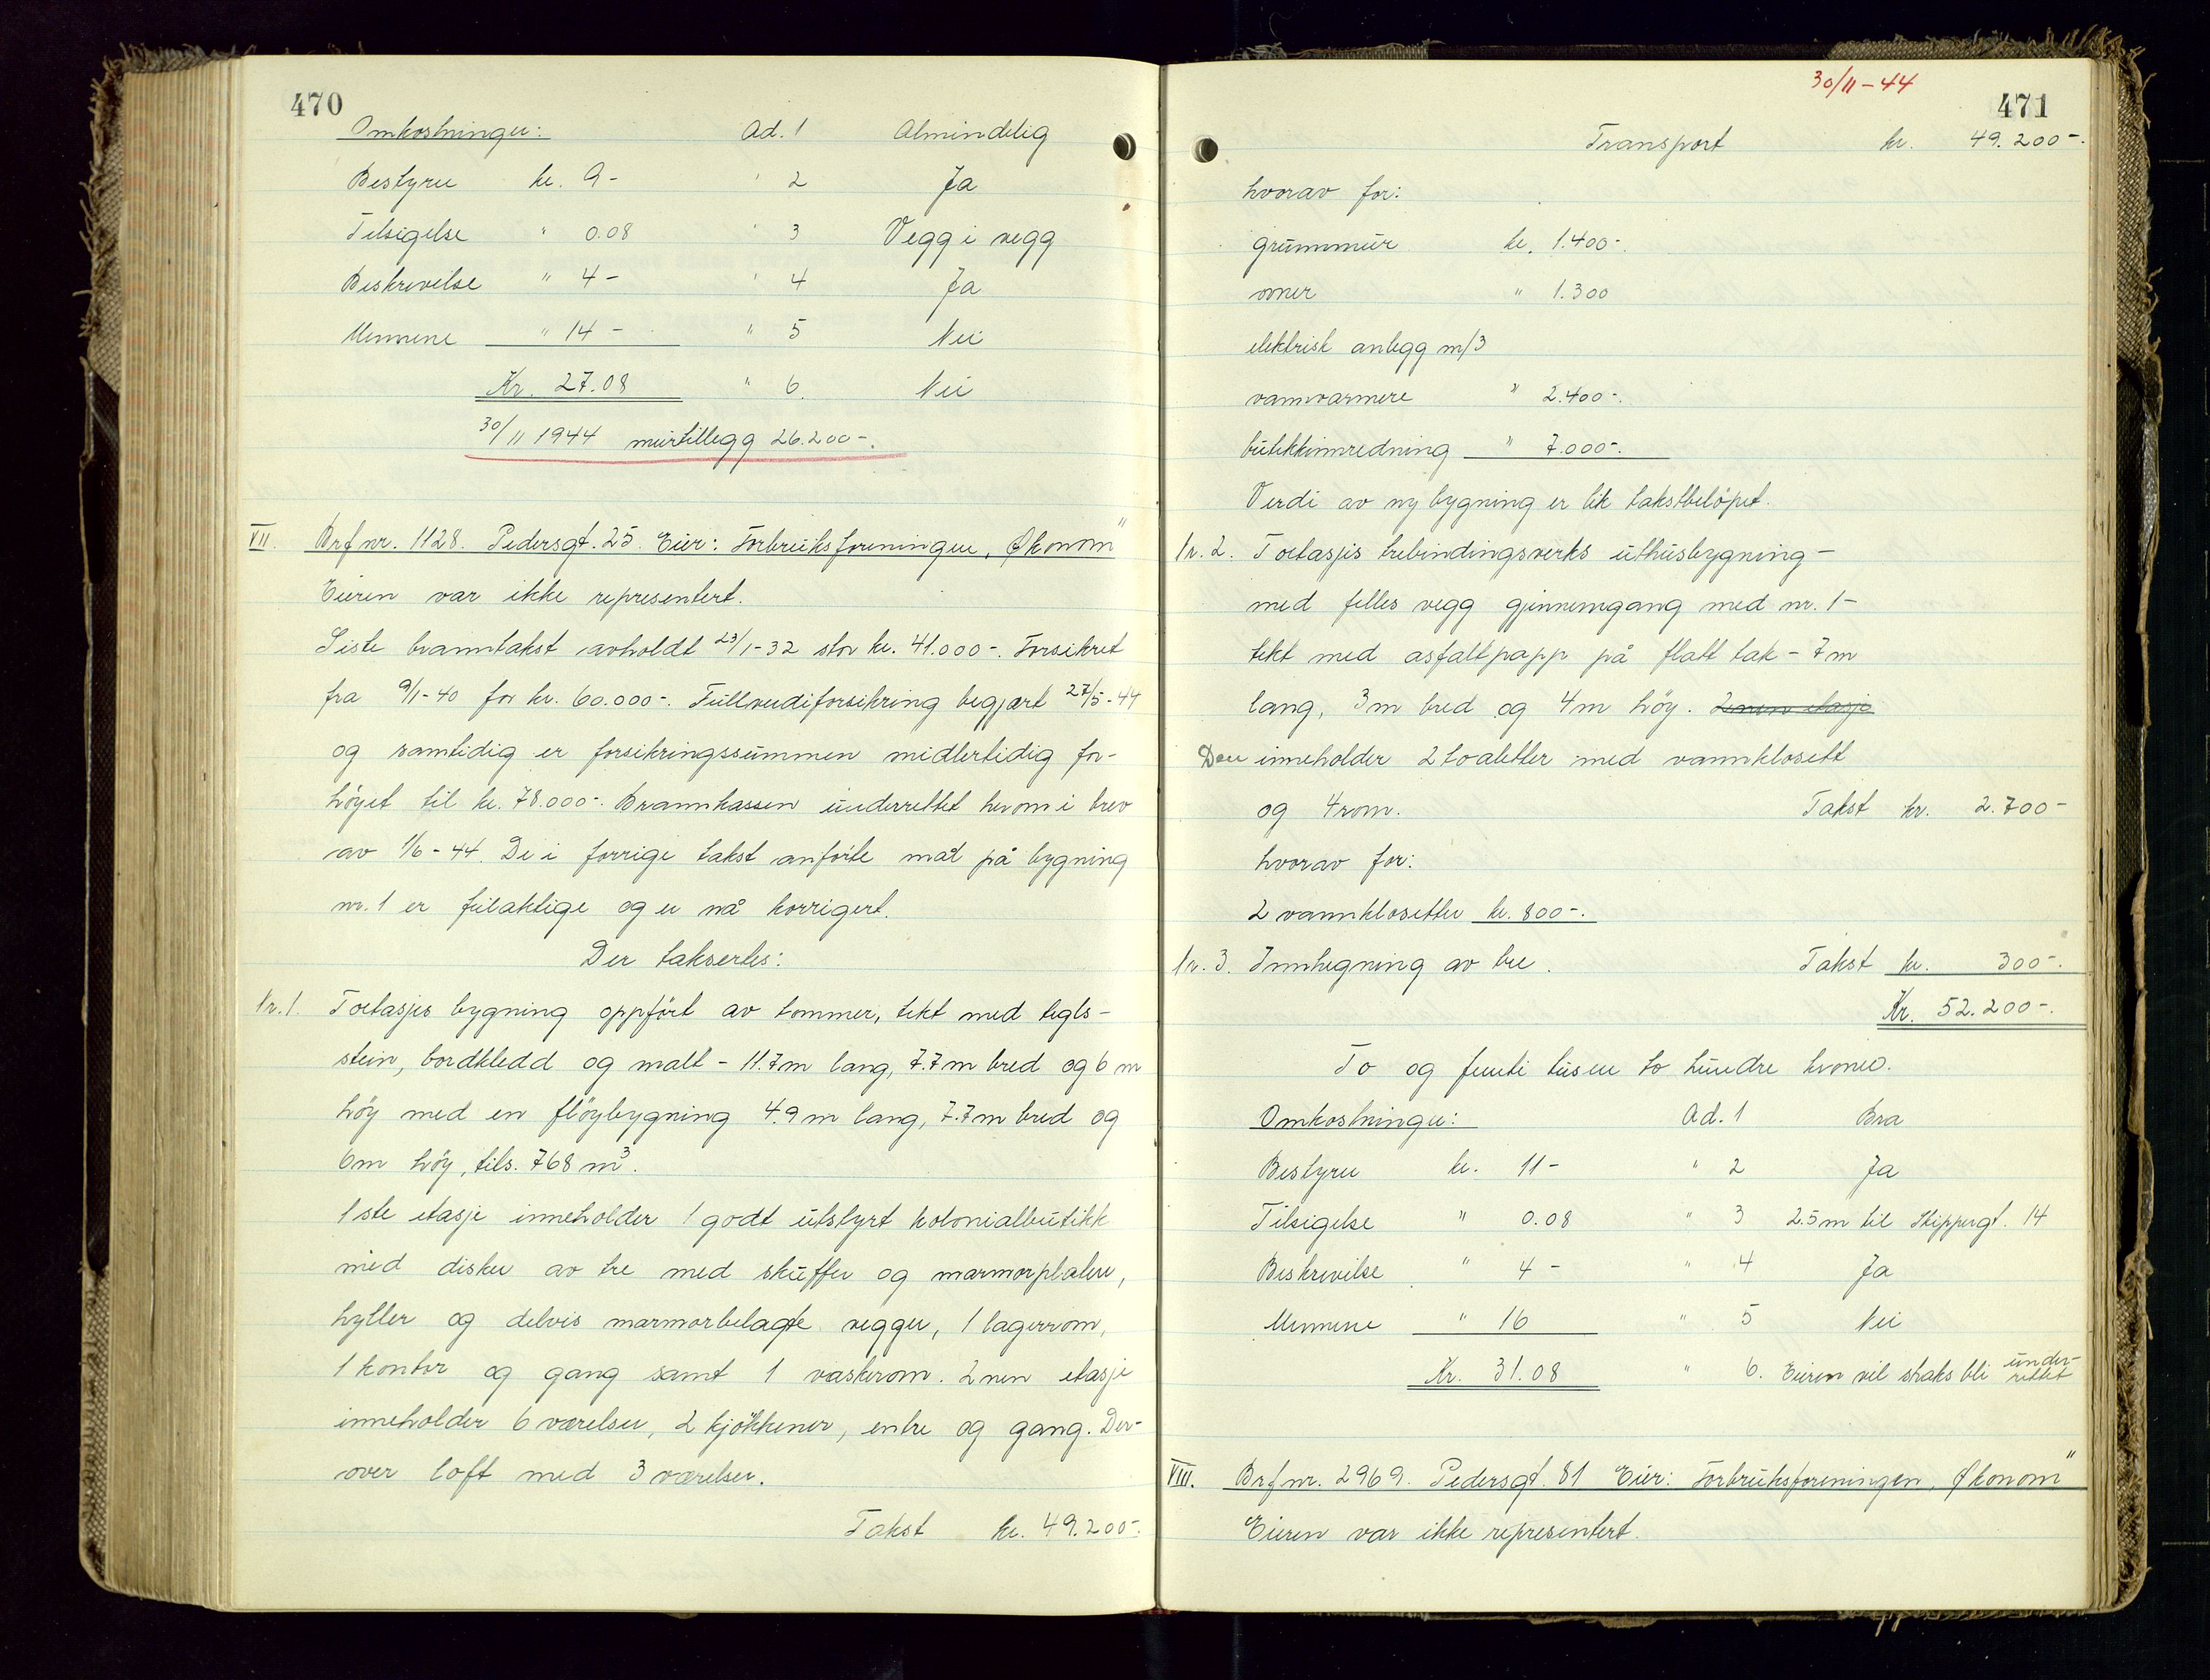 470
Omkostninger: Ad. 1 Almindelig
Bestyrer kr. 9- " 2 Ja
Tilsigelse " 0.08 " 3 Vegg i vegg
Beskrivelse " 4- " 4 Ja
Mennene " 14- " 5 Nei
Kr. 27.08 " 6. Nei
30/11 1944 murtillegg 26.200-.
VII. Brf nr. 1128. Pedersgt. 25. Eier: Forbruksforeningen „Økonom"
Eieren var ikke representert.
Siste branntakst avholdt 23/1-32 stor kr. 41.000-. Forsikret
fra 9/1-40 for kr. 60.000-. Fullverdiforsikring begjært 27/5-44
og samtidig er forsikringssummen midlertidig for-
höyet til kr. 78.000-. Brannkassen underrettet herom i brev
av 1/6-44. De i forrige takst anförte mål på bygning
nr. 1 er feilaktige og er nå korrigert.
Der takseres:
Nr. 1. Toetasjes bygning oppfört av tømmer, tekt med tegls-
stein, bordkledd og malt - 11.7m lang, 7.7m bred og 6 m
höy med en flöybygning 4.9m lang, 7.7m bred og
6m höy, tils. 768 m³.
1ste etasje inneholder 1 godt utstyrt kolonialbutikk
med disker av tre med skuffer og marmorplater,
hyller og delvis marmorbelagte vegger, 1 lagerrom,
1 kontor og gang samt 1 vaskerom. 2nen etasje
inneholder 6 værelser, 2 kjökkener, entre og gang. Der-
over loft med 3 værelser.
Takst kr. 49.200-.
30/11-44
471
Transport kr. 49.200-.
hvorav for:
grunnmur kr. 1.400-.
ovner " 1.300
elektrisk anlegg m/3
vannvarmere " 2.400-.
butikkinnredning " 7.000-.
Verdi av ny bygning er lik takstbelöpet.
Nr. 2. Toetasjes trebindingsverks uthusbygning -
med felles vegg gjennemgang med nr. 1 -
tekt med asfaltpapp på flatt tak - 7m
lang, 3m bred og 4m höy. 2nen etasje
Den inneholder 2 toaletter med vannklosett
og 4 rom. Takst kr. 2.700-
hvorav for:
2 vannklosetter kr. 800-.
Nr. 3. Innhegning av tre. Takst kr. 300-.
Kr. 52.200-.
To og femti tusen to hundre kroner.
Omkostninger: Ad. 1 Bra
Bestyrer kr. 11- " 2 Ja
Tilsigelse " 0.08 " 3 2.5m til Skippergt. 14
Beskrivelse " 4- " 4 Ja
Mennene " 16 " 5 Nei
Kr. 31.08 " 6. Eieren vil straks bli under-
rettet
VIII. Brf nr. 2969. Pedersgt. 81 Eier: Forbruksforeningen „Økonom"
Eieren var ikke representert.